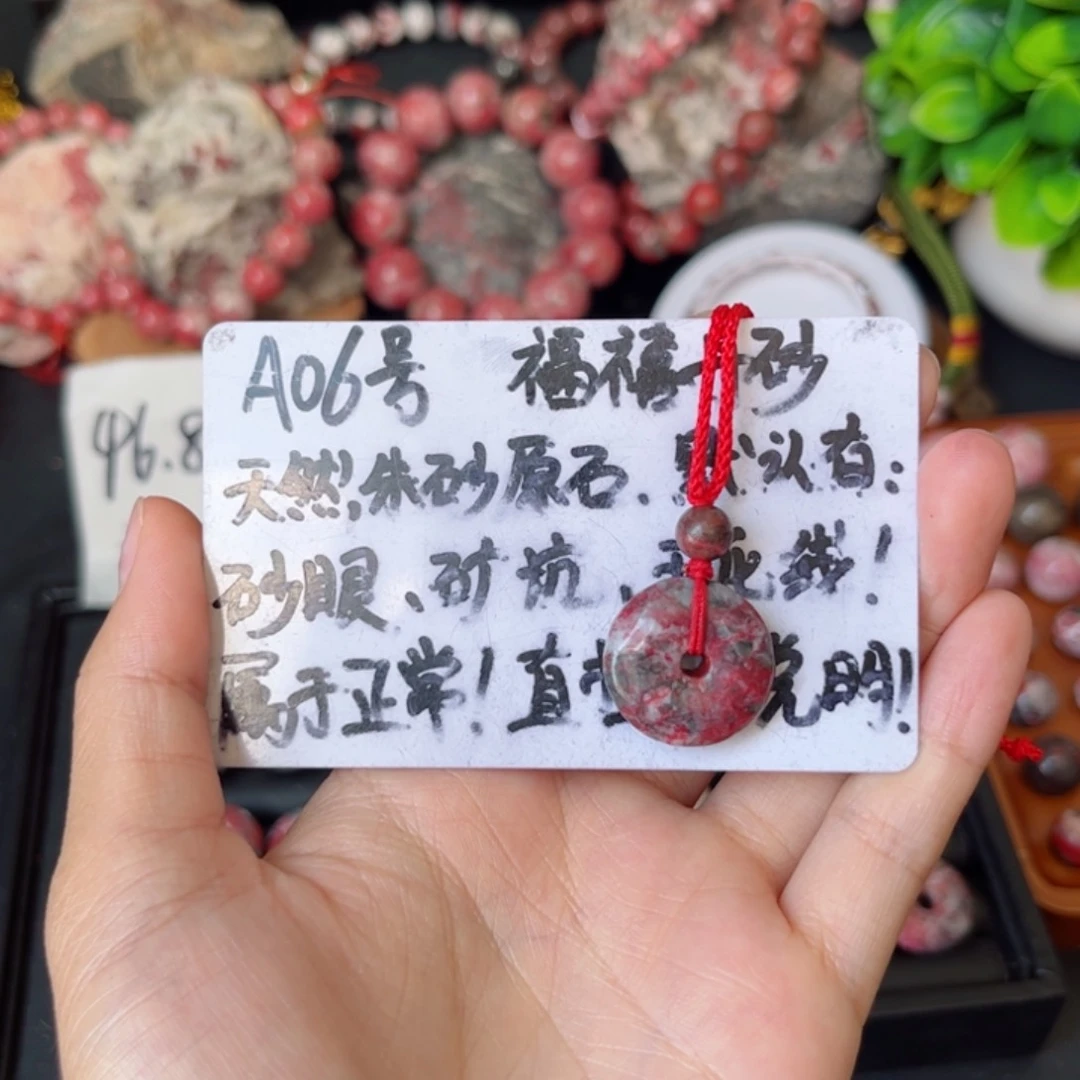 A06号 福禧 砂
天然,朱砂原石. 默认有:
砂眼、矿坑、 线!
属于正常! 直 说明!
46.8